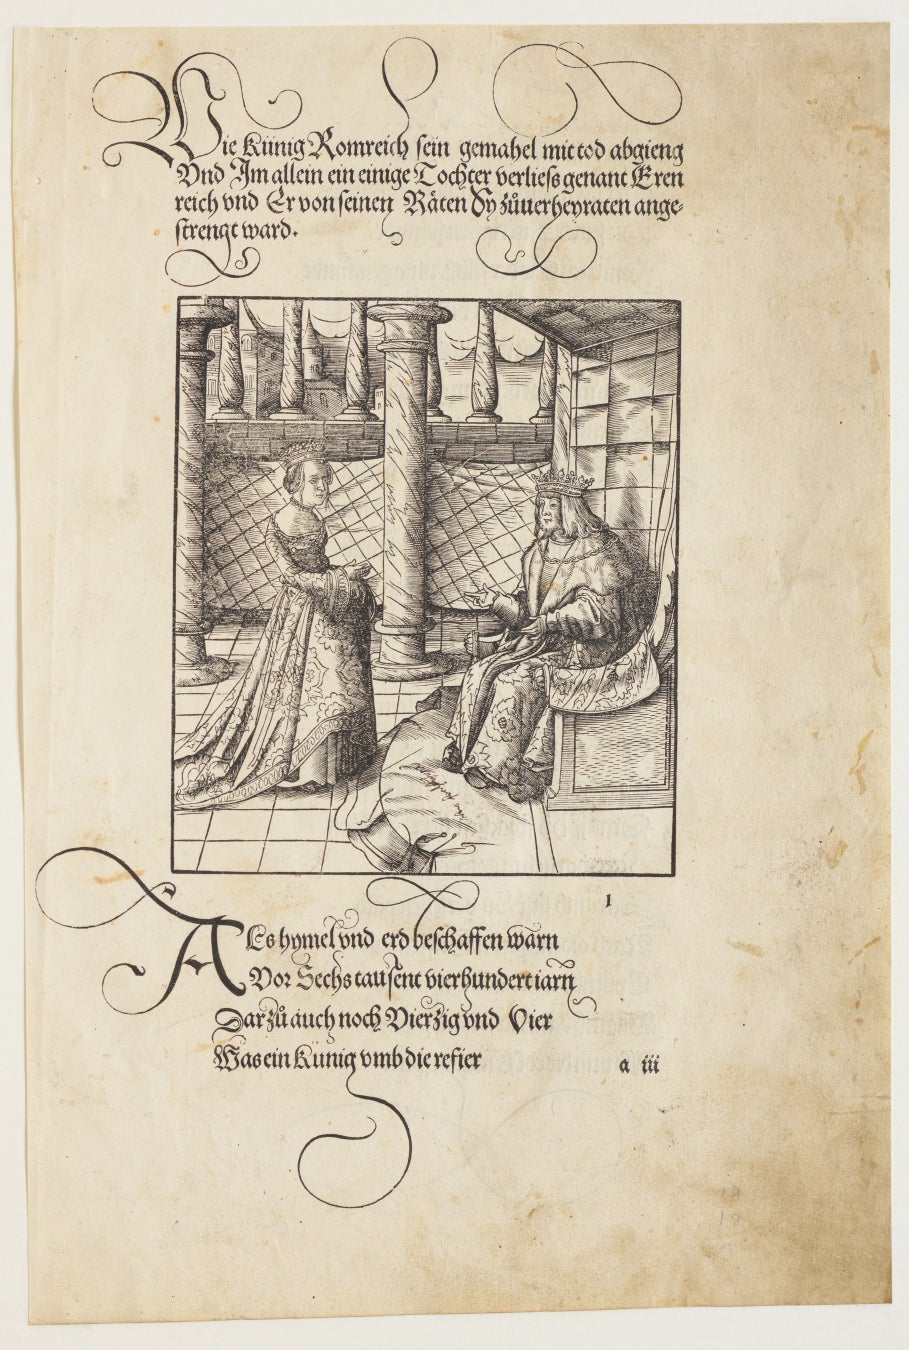 Wie Künig Romreich sein gemahel mit tod abgieng
Vnd Im allein ein einige Tochter verliess genant Eren
reich vnd Er von seinen Räten Sy zůuerheyraten ange-
strengt ward.
1
ALs hymel vnd erd beschaffen warn
Vor Sechs tausent vierhundert iarn
Darzů auch noch Vierzig vnd Vier
Was ein Künig vmb die refier
a iii